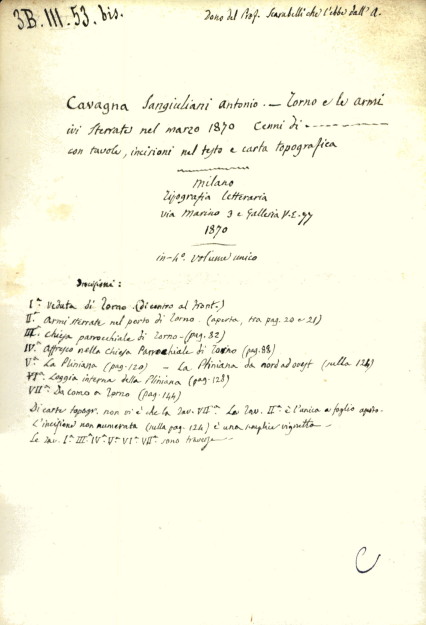 3B.III.53. bis.
Dono del Prof. Scarabelli che l'ebbe dall' A.
Cavagna Sangiuliani Antonio. — Torno e le armi
ivi sterrate nel marzo 1870 Cenni di
con tavole, incisioni nel testo e carta topografica
Milano
Tipografia Letteraria
via Marino 3 e Galleria V.E. 77
1870
in-4º. volume unico
Incisioni:
Iª. Veduta di Torno. (Di contro al Front.)
IIª. Armi sterrate nel porto di Torno. (aperta, tra pag. 20 e 21)
IIIª. Chiesa parrocchiale di Torno. (pag. 82)
IVª. Affresco nella chiesa Parrochiale di Torno (pag. 88)
Vª. La Pliniana (pag. 120) — La Pliniana da nord ad ovest (nella 124)
VIª. Loggia interna della Pliniana (pag. 128)
VIIª. Da Como a Torno (pag. 144)
Di carte topogr. non vi è che la Tav. VIIª. La Tav. IIª. è l'unica a foglio aperto.
L'incisione non numerata (nella pag. 124) è una semplice vignetta —
Le tav. Iª. IIIª. IVª. Vª. VIª. VIIª. sono
C